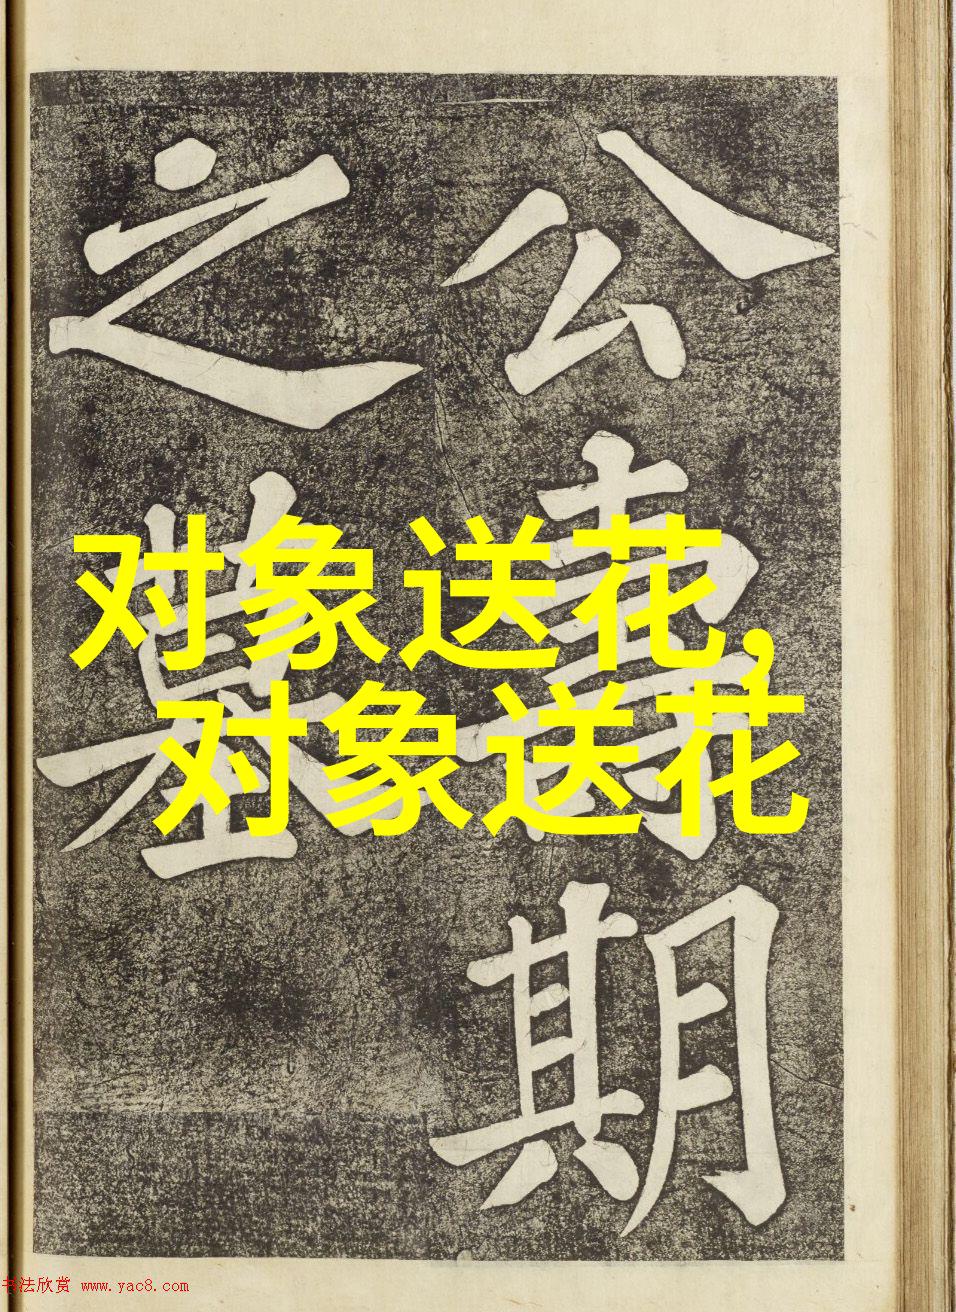 公壽期
之墓
对象送花,
对象送花
书法欣赏 www.yac8.com